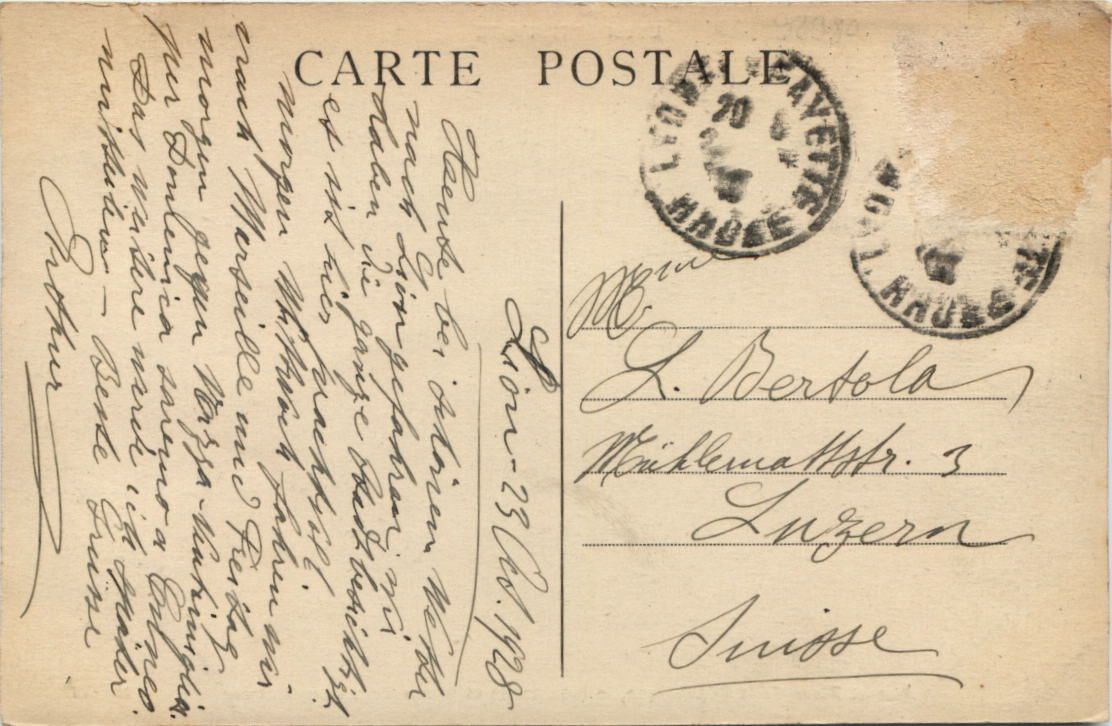 CARTE POSTALE
LYON LAFAYETTE
20
RHONE
RHONE
Lion - 23 Oct. 1928
Heute bei schönem Wetter
nach Lion gefahren, wir
haben die ganze Stadt besichtigt
es ist hier prachtvoll
Morgen Mittwoch fahren wir
nach Marseille und Freitag
morgen gegen
per Domenica sanremo a
Das weitere werde ich später
mitteilen - Beste Grüsse
Arthur
Mme
L. Bertola
Mühlemattstr. 3
Luzern
Suisse